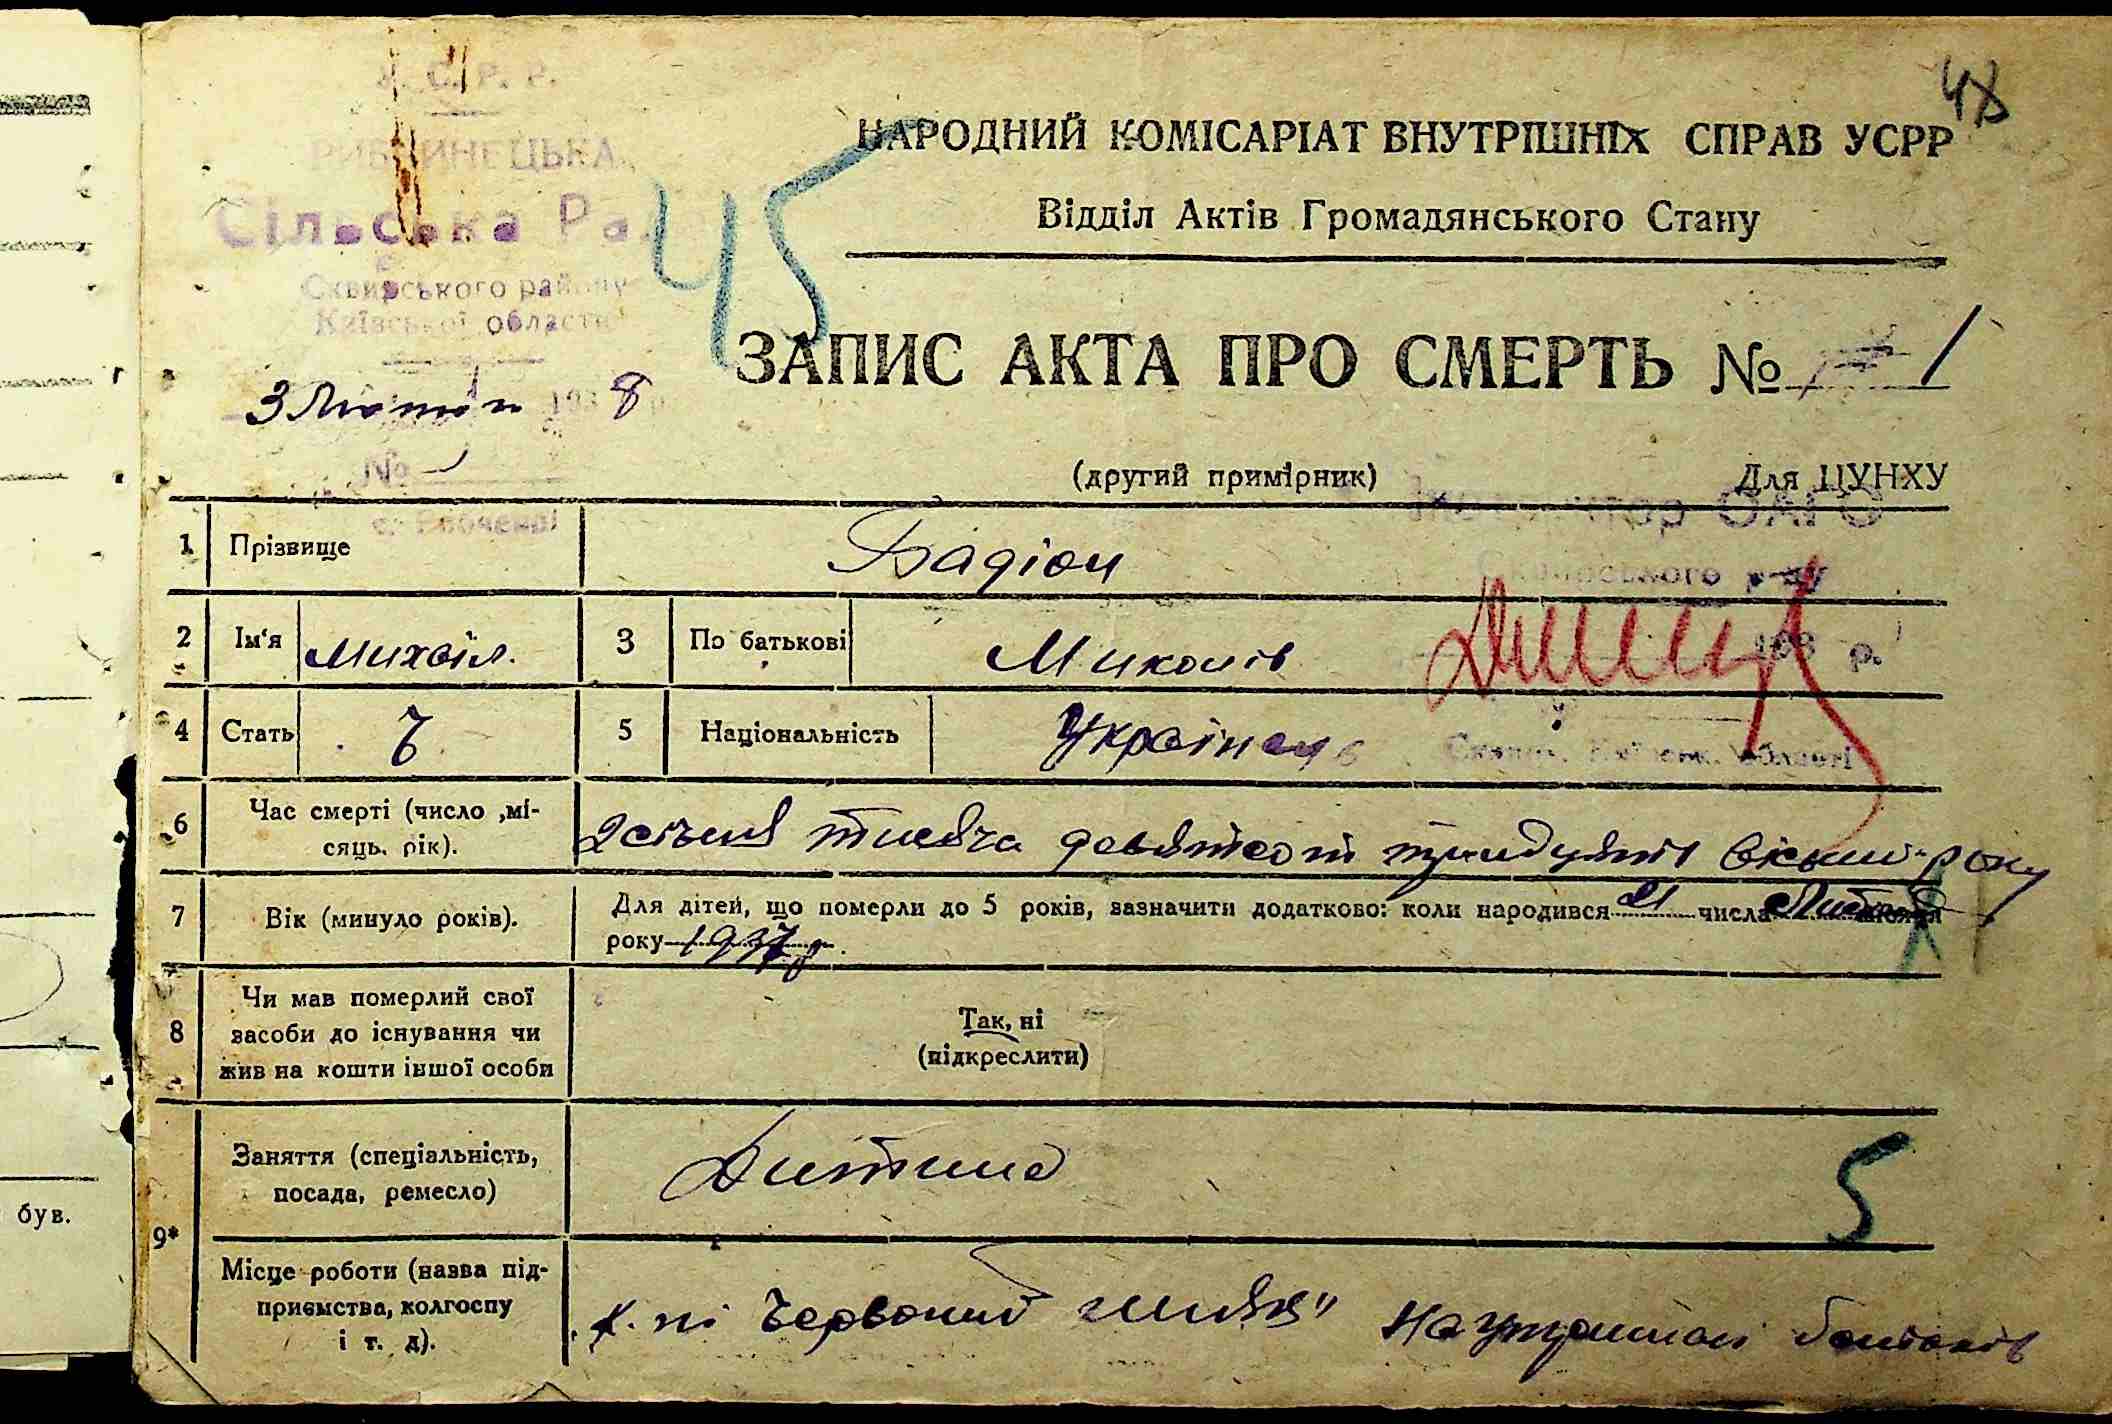 48
У. С. Р. Р.
НАРОДНИЙ КОМІСАРІАТ ВНУТРІШНІХ СПРАВ УСРР
Сільська Рада
45
Відділ Актів Громадянського Стану
Сквирського району
Київської області
ЗАПИС АКТА ПРО СМЕРТЬ № 1
3 Лютого 1938 р.
№ 1
(другий примірник) Для ЦУНХУ
Інспектор ОАГС
1 Прізвище Бадіон
Сквирського р-ну
2 Ім'я Михаіл. 3 По батькові Миколів
193 р.
4 Стать Ч 5 Національність Українець
6 Час смерті (число ,мі-
сяць. рік).
2 січня тисяча девятсот тридцять восьми року
7 Вік (минуло років).
Для дітей, що померли до 5 років, зазначити додатково: коли народився 21 числа місяця
року 1937 р.
8 Чи мав померлий свої
засоби до існування чи
жив на кошти іншої особи
Так, ні
(підкреслити)
9*
Заняття (спеціальність,
посада, ремесло)
Дитина
5
Місце роботи (назва під-
приємства, колгоспу
і т. д).
к-пі Червоний шлях" На утримані батьків
був.